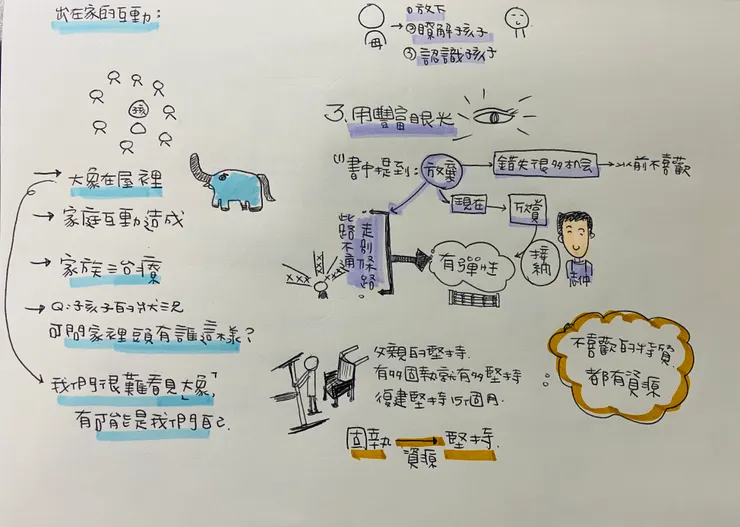 出在家的互動:
孩
→ 大象在屋裡
→ 家庭互動造成
→ 家族治療
→ Q:子孩子的狀況
可問家裡頭有誰這樣?
→ 我們很難看見「大象」
有可能是我們自己.
母
①放下
→②瞭解孩子
③認識孩子
3.用豐富眼光
(1)書中提到:放棄 → 錯失很多机会 → 以前不喜歡
現在 → 欣賞
接納
志仲
此路不通
走別條路
xxx
xxx
有彈性
父親的堅持.
有多固執就有多堅持
復建堅持15個月.
固執 → 堅持.
資源
不喜歡的特質
都有資源